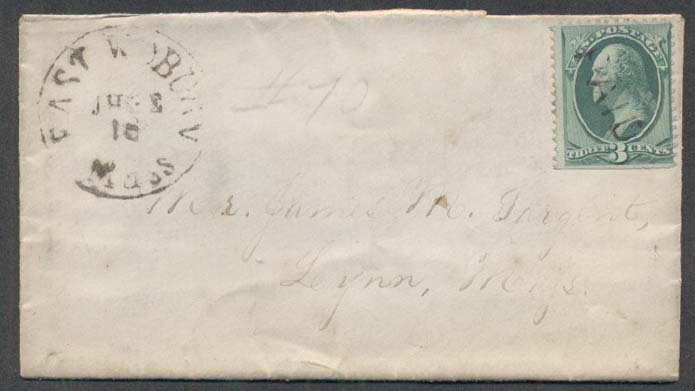 EAST WOBURN
JUN
18
MASS
U.S. POSTAGE
PAID
THREE 3 CENTS
Mr. James M. Sargent,
Lynn, Mass.